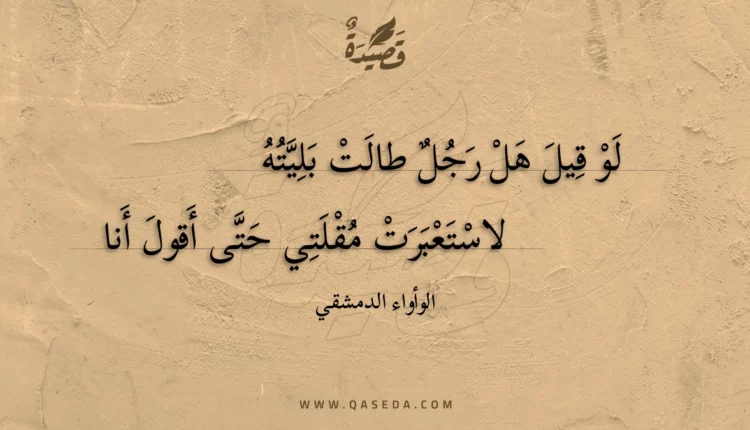 قَصِيدَةٌ
لَوْ قِيلَ هَلْ رَجُلٌ طالَتْ بَلِيَّتُهُ
لاسْتَعْبَرَتْ مُقْلَتِي حَتَّى أَقولَ أَنا
الوأواء الدمشقي
WWW.QASEDA.COM